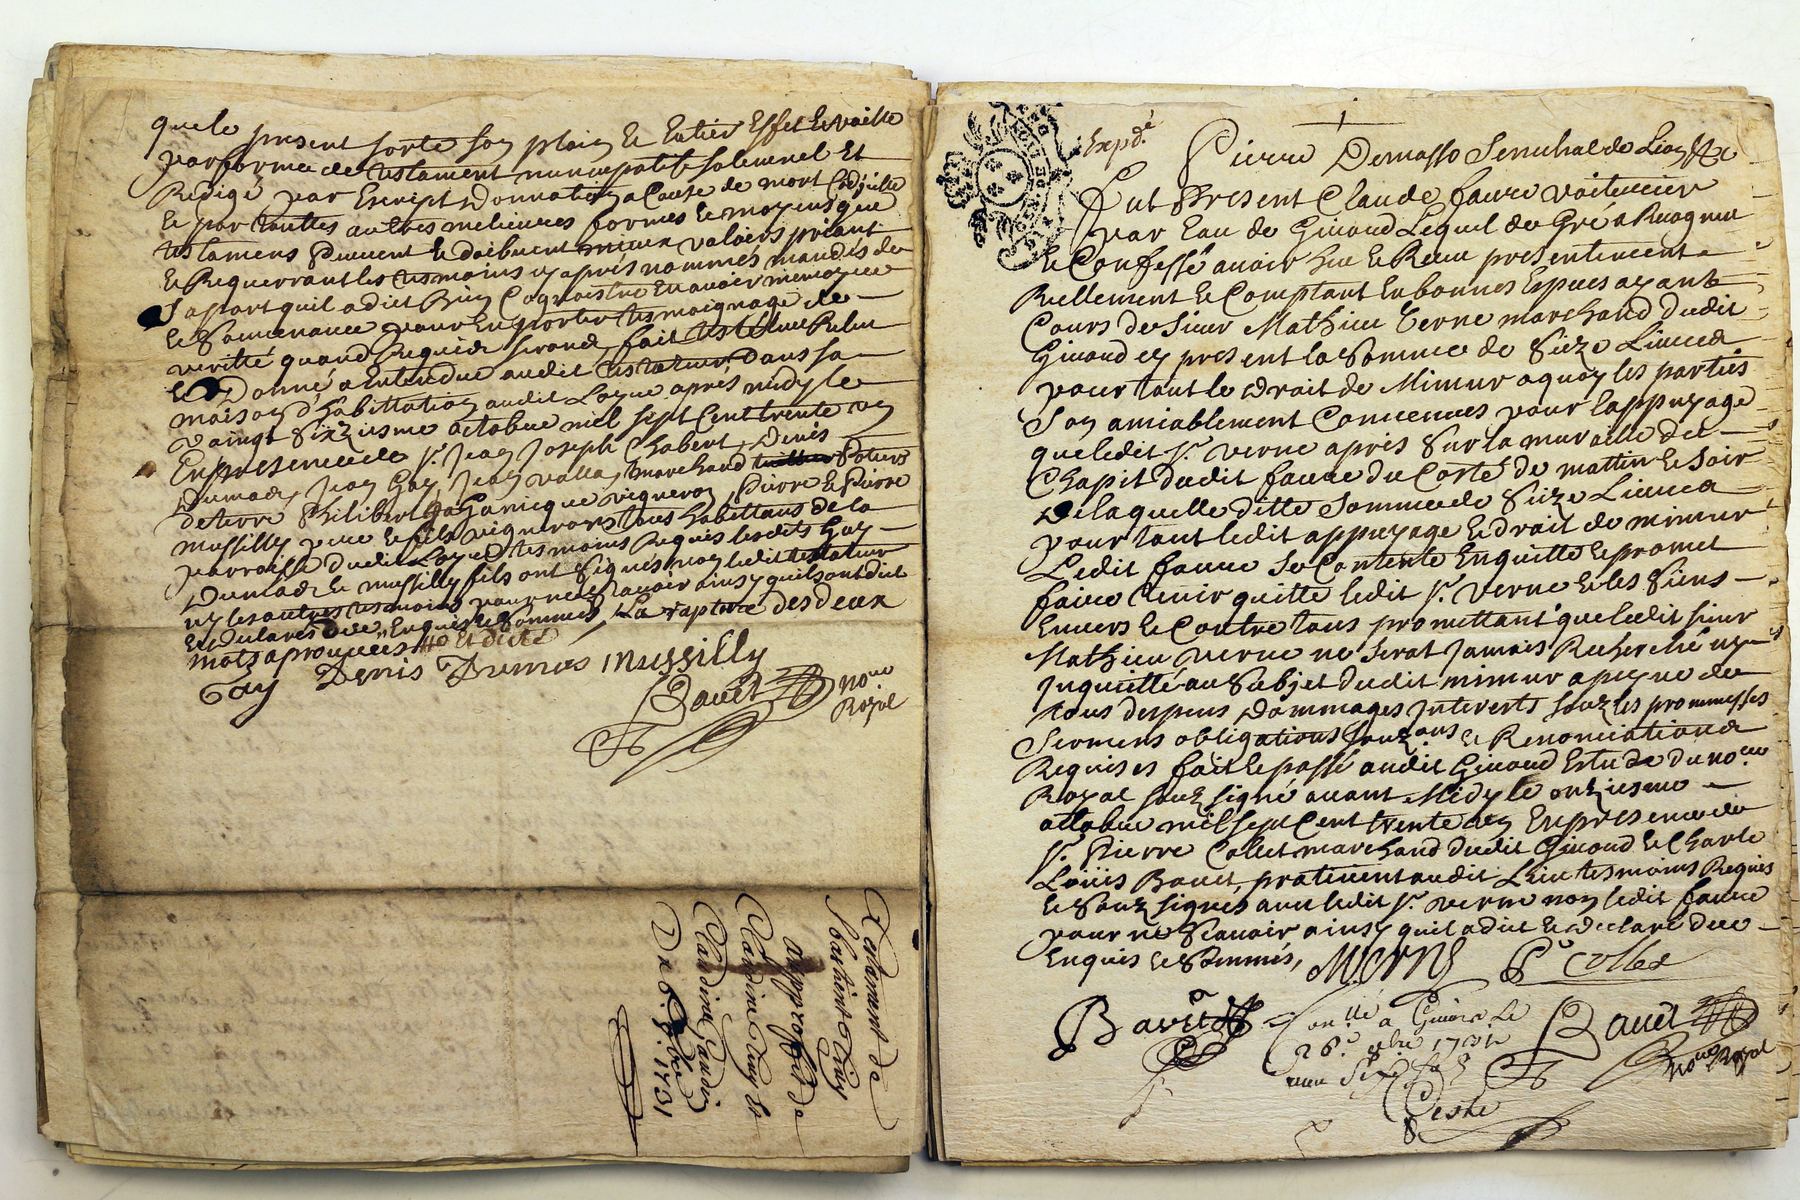 que le present sorte son plain et entier Effet et vaille
par forme de testament nuncupatif solemnel Et
Redigé par Escript Donnation a Cause de mort Codicille
et par touttes autres melieures formes et moyens que
testamens peuvent et doibuent mieux valoirs priant
et Requerrant les tesmoins cy aprés nommés mandés de
sa part quil a dict Bien Cognoistre En avoir memoyre
et Souvenance pour En porter tesmoignage de
veritté quand Requis seront, fait
et Donné a Entendre audit testateur, Dans sa
maison d'habittation audit Loyre aprés midy le
vaingt Sixziesme octobre miel sept Cent trente un
En presence de Sr. Jean Joseph Chabert, Denis
Dumas, Jean Gay, Jean valla, marchand Potiers
de terre Philibert vigneron, Pierre et Pierre
mussilly pere et fils vignerons tous habittans de la
parroisse dudit Loyre tesmoins Requis lesdits Gay
Dumas et mussilly fils ont Signés non ledit testateur
ny les autres tesmoins pour ne scavoir ainsy quils ont dict
et declares de ce Enquis et sommés, La rapture des deux
mots aprouvées
Gay Denis Dumas mussilly
Bavet nore
Royal
Testament de
Claudine Gaudin
Du 26. 8bre. 1731
Expdé.
Pierre Demasso Senechal de Lion
Fut Present Claude faure voiturier
par Eau de Givord Lequel de Gré a Recognu
et Confessé avoir heu et Receu presentement
Reellement et Comptant En bonnes Especes ayant
Cours de Sieur Mathieu verne marchand dudit
Givord cy present la Somme de Sieze Livres
pour tout le Droit de Mimur a quoy les parties
Son amiablement Convenues pour lappuyage
que ledit Sr. verne a pris Sur la muraille du
Chapit dudit faure du Costé de mattin et soir
De laquelle ditte Somme de Sieze Livres
pour tout ledit appuyage et droit de mimur
Ledit faure Se Contente En quitte et promet
faire tenir quitte ledit Sr. verne et les Siens
Envers et Contre tous promettant que ledit sieur
Mathieu verne ne Serat Jamais Recherché ny
Inquietté au Subjet dudit mimur a peyne de
tous despens Dommages Interests souz les promesses
Sermens obligations souzons et Renonciations
Requises fait et passé audit Givord Estude du nore
Royal souz signé avant Midy le onziesme
octobre mil sept Cent trente un En presence de
Sr. Pierre Collet marchand dudit Givord et Charle
Loüis Bavet, pratitient audit Lieu tesmoins Requis
et Souz signés avec ledit Sr. verne non ledit faure
pour ne Scavoir ainsy quil a dict et declaré de ce
Enquis et Sommés, M verne P Collet
Bavet Bavet
Conllé a Givors Le
26e. 8bre 1731
nore Royal